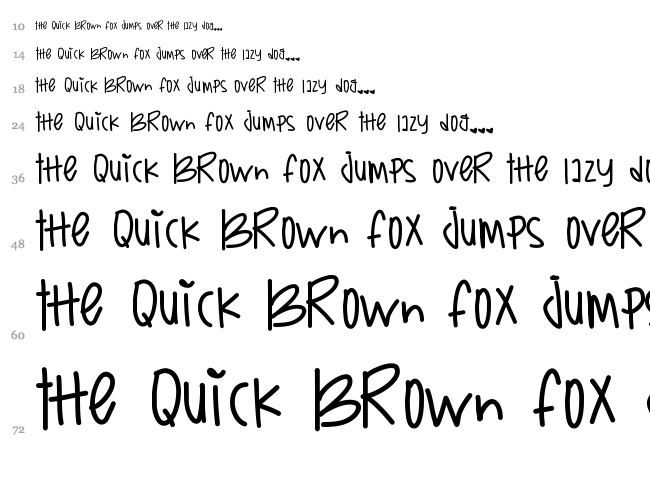 10 the Quick BRown fox jumps oveR the lazy dog...
14 the Quick BRown fox jumps oveR the lazy dog...
18 the Quick BRown fox jumps oveR the lazy dog...
24 the Quick BRown fox jumps oveR the lazy dog...
36 the Quick BRown fox jumps oveR the lazy do
48 the Quick BRown fox jumps oveR
60 the Quick BRown fox jumps
72 the Quick BRown fox